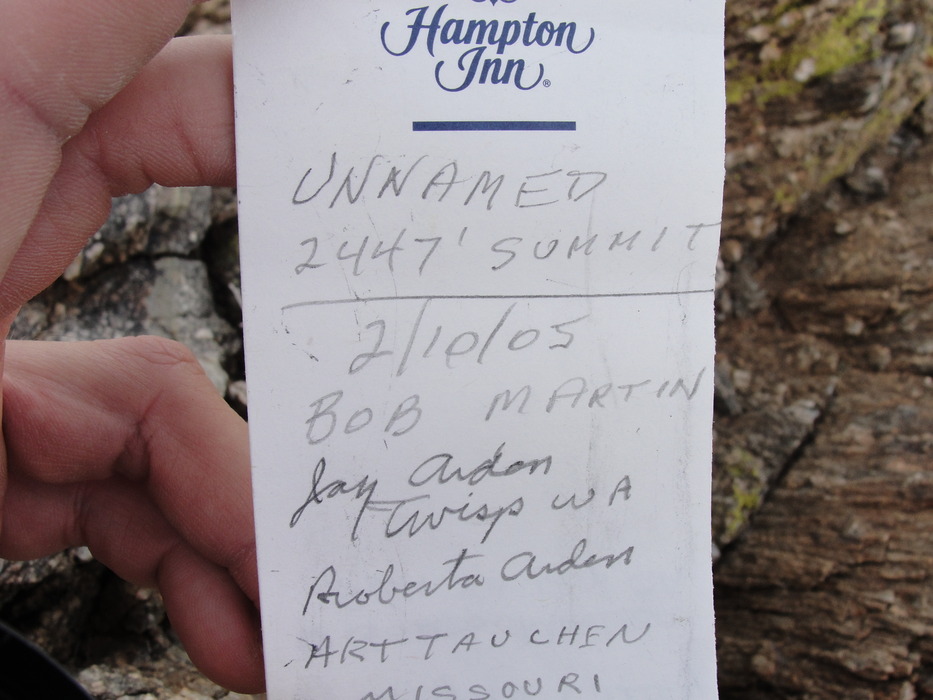 Hampton
Inn®
UNNAMED
2447' SUMMIT
2/10/05
BOB MARTIN
Jay Arden
Twisp WA
Roberta Arden
ART TAUCHEN
MISSOURI